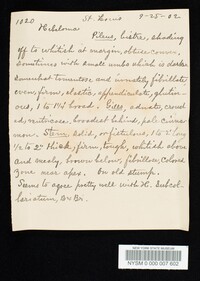 1020 St. Louis 9-25-02
Hebeloma
Pileus, bistre, shading
off to whitish at margin, obtuse, convex.
Sometimes with small umbo which is darker
somewhat tomentose and innately fibrillose
even, firm, elastic, appendiculate, glutin-
ous, 1 to 1¾ broad. Gills, adnate, crowd
ed, ventricose, broadest behind, pale cinna
mon. Stem solid, or fistulous, 1 to 2 long
½ to 2 thick, firm, tough, whitish above
and mealy, brown below, fibrillose, colored
zone near apex. On old stump.
Seems to agree pretty well with H. subcol-
lariatum, B & Br.
NEW YORK STATE MUSEUM
NYSM 0 000 007 602